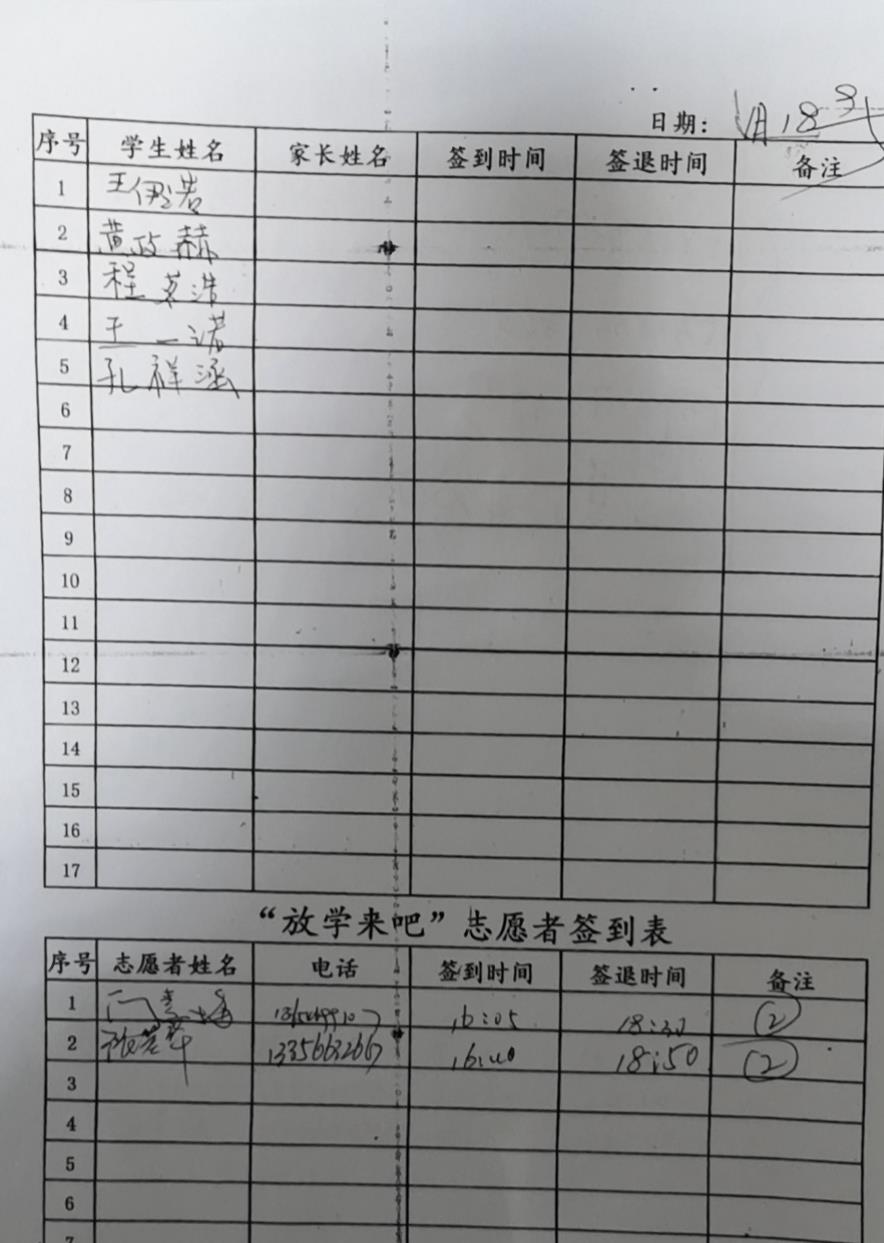 日期: 月18
序号 学生姓名 家长姓名 签到时间 签退时间 备注
1 王伊诺
2 黄政赫
3 程茗浩
4 王一诺
5 孔祥涵
6
7
8
9
10
11
12
13
14
15
16
17
“放学来吧”志愿者签到表
序号 志愿者姓名 电话 签到时间 签退时间 备注
1 16:05 18:30 (2)
2 13356632667 16:40 18:50 (2)
3
4
5
6
7